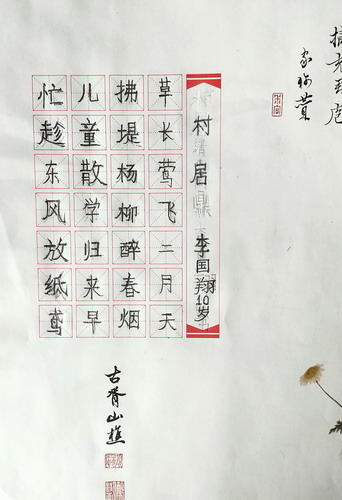 村居
李国翔10岁
草长莺飞二月天
拂堤杨柳醉春烟
儿童散学归来早
忙趁东风放纸鸢
古脊山樵